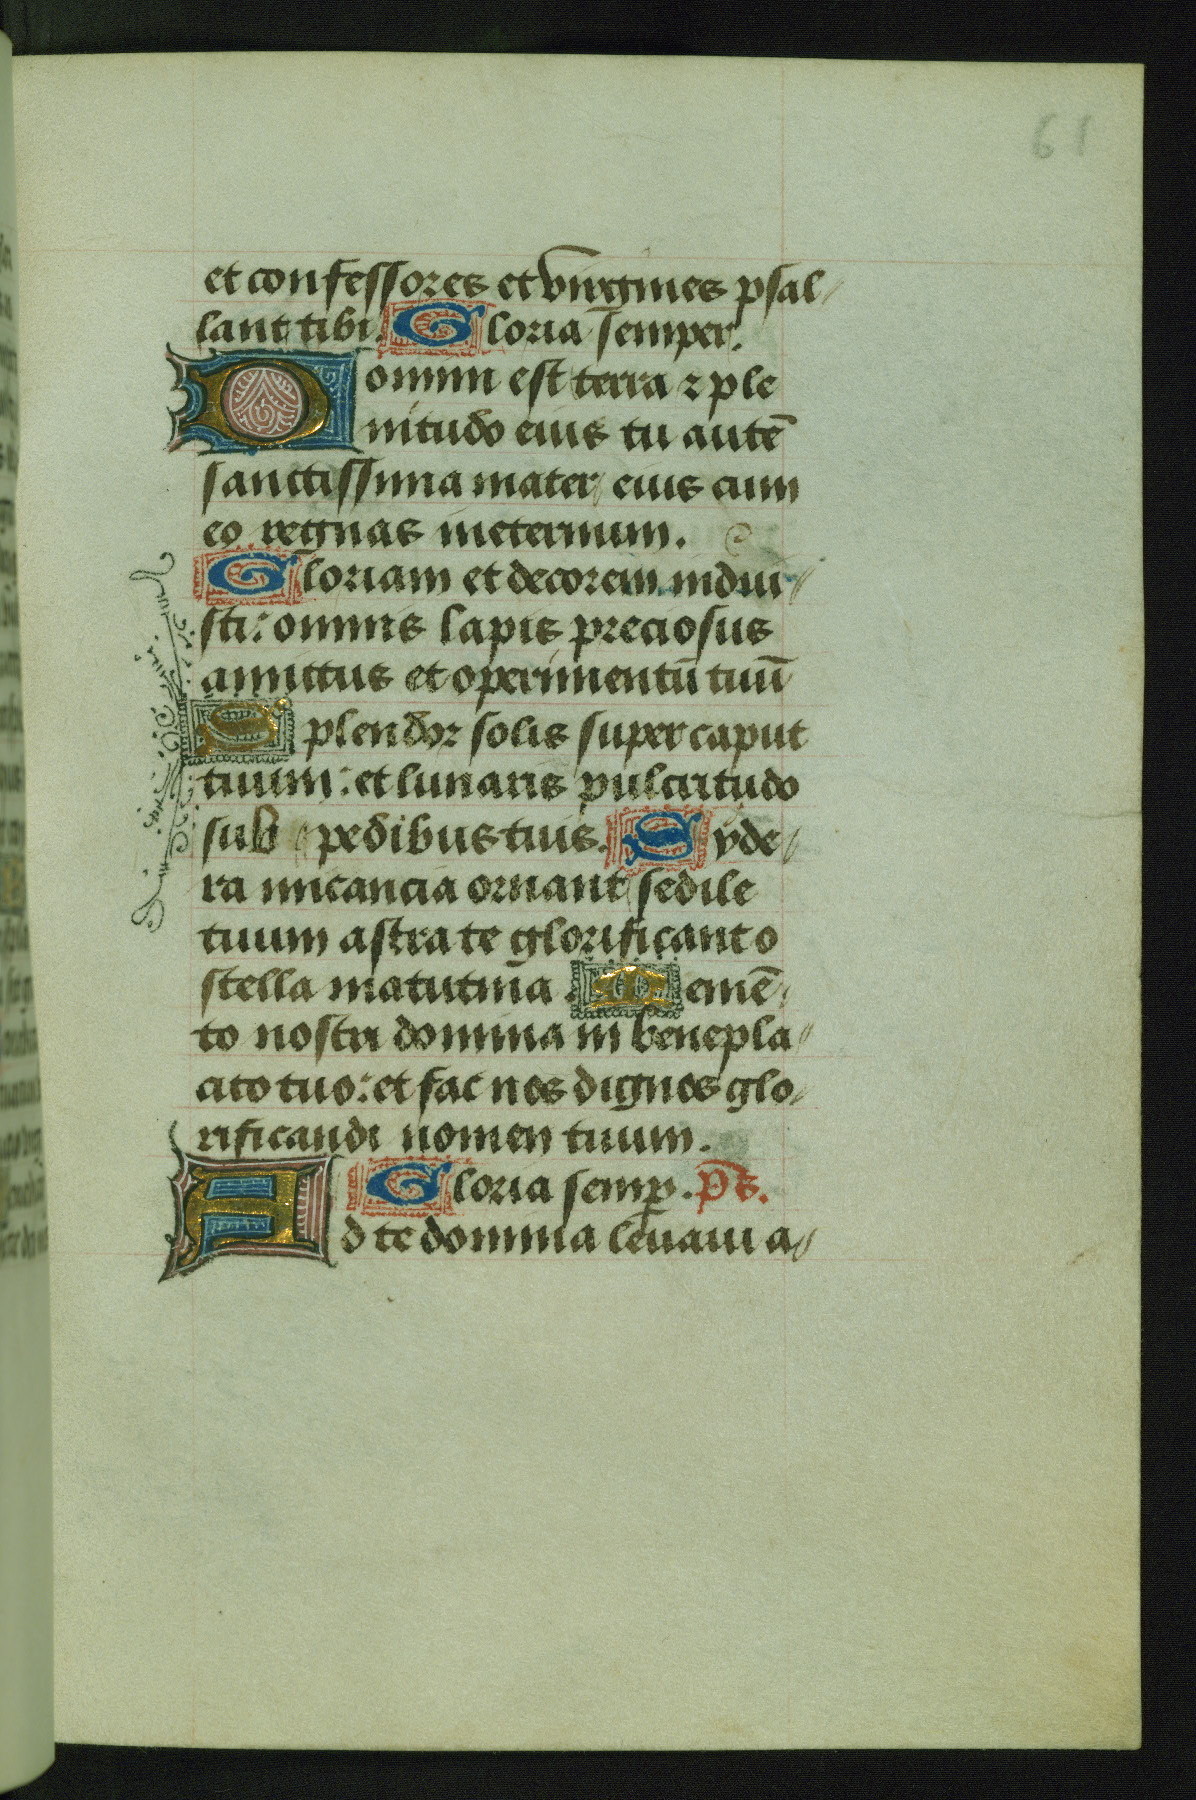 61
et confessores et virgines psal
lant tibi. Gloria semper.
Domini est terra ⁊ ple
nitudo eius tu autē
sanctissima mater eius cum
eo regnas ineternum.
Gloriam et decorem indui
sti: omnis lapis preciosus
amictus et operimentū tuū
Splendor solis super caput
tuum: et lunaris pulcritudo
sub pedibus tuis. Syde
ra micancia ornant sedile
tuum astra te glorificant o
stella matutina. Memē
to nostri domina in benepla
cito tuo: et fac nos dignos glo
rificandi nomen tuum.
Gloria semp̲. Ps̄.
Ad te domina leuaui a